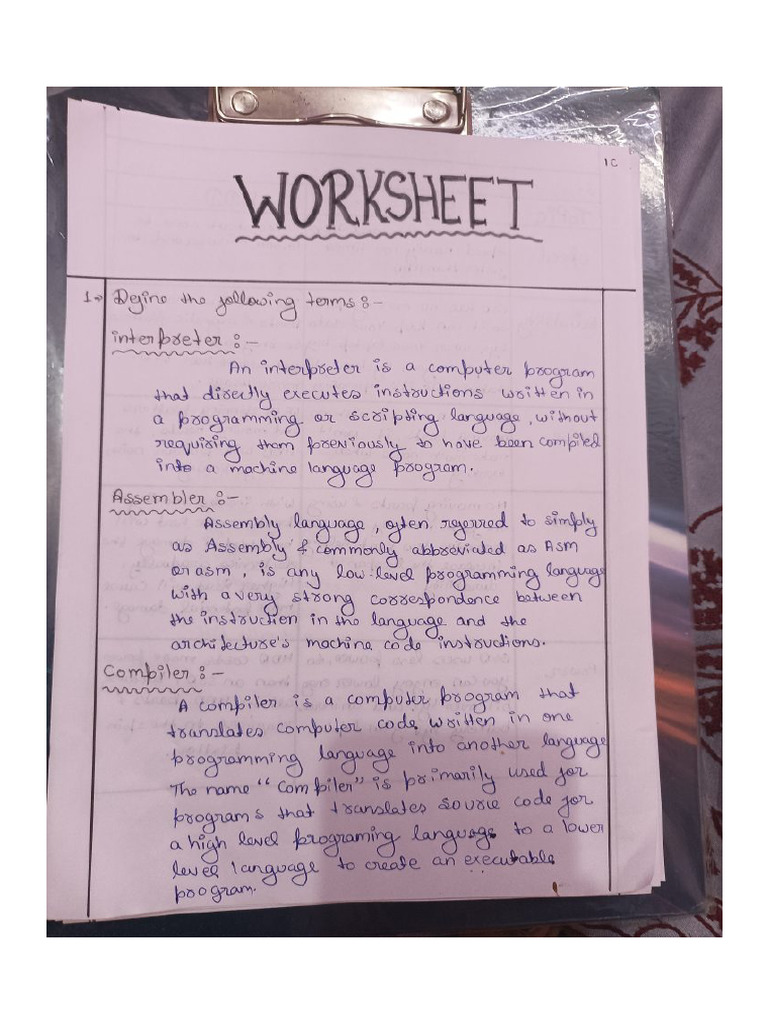 1C
WORKSHEET
1→ Define the following terms:-
interpreter:-
An interpreter is a computer program
that directly executes instructions written in
a programming or scripting language, without
requiring them previously to have been compiled
into a machine language program.
Assembler:-
Assembly language, often referred to simply
as Assembly & commonly abbreviated as ASM
or asm, is any low-level programming language
with a very strong correspondence between
the instruction in the language and the
architecture's machine code instructions.
Compiler:-
A compiler is a computer program that
translates computer code written in one
programming language into another language
The name "Compiler" is primarily used for
programs that translates source code for
a high level programing language to a lower
level language to create an executable
program.